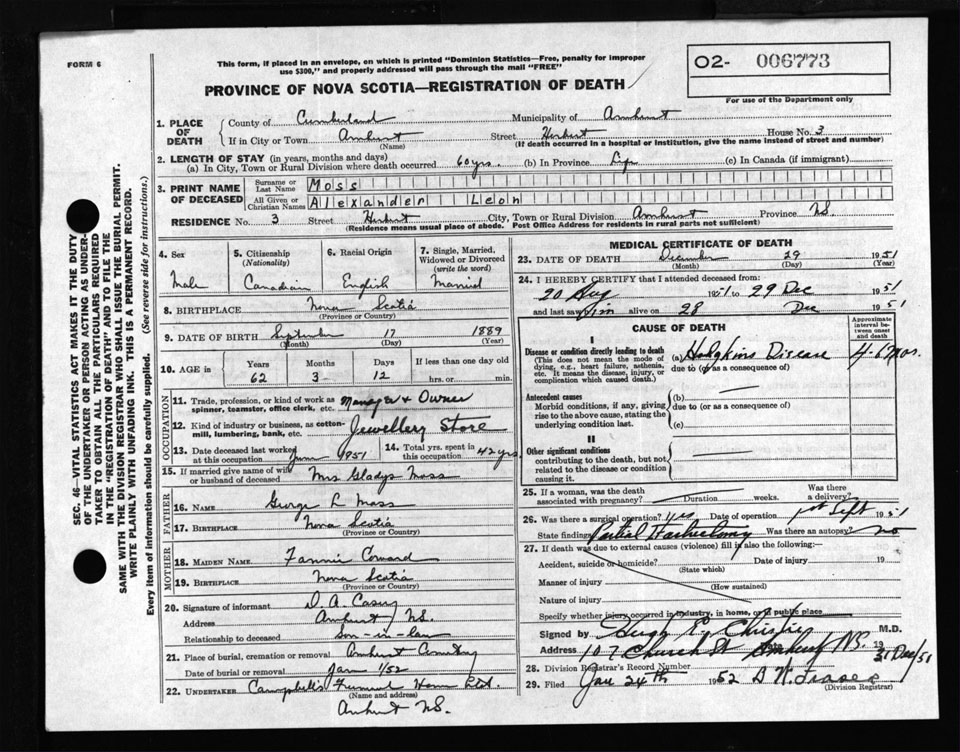 FORM 6
This form, if placed in an envelope, on which is printed "Dominion Statistics—Free, penalty for improper
use $300," and properly addressed will pass through the mail "FREE"
PROVINCE OF NOVA SCOTIA—REGISTRATION OF DEATH
02- 006773
For use of the Department only
1. PLACE OF DEATH
County of Cumberland Municipality of Amherst
If in City or Town Amherst Street Herbert House No. 3
(Name) (If death occurred in a hospital or institution, give the name instead of street and number)
2. LENGTH OF STAY (in years, months and days)
(a) In City, Town or Rural Division where death occurred 60 yrs. (b) In Province Life (c) In Canada (if immigrant)
3. PRINT NAME OF DECEASED
Surname or Last Name Moss
All Given or Christian Names Alexander Leon
RESIDENCE No. 3 Street Herbert City, Town or Rural Division Amherst Province NS
(Residence means usual place of abode. Post Office Address for residents in rural parts not sufficient)
4. Sex Male
5. Citizenship (Nationality) Canadian
6. Racial Origin English
7. Single, Married, Widowed or Divorced (write the word) Married
8. BIRTHPLACE Nova Scotia
(Province or Country)
9. DATE OF BIRTH September 17 1889
(Month) (Day) (Year)
10. AGE in Years Months Days If less than one day old
62 3 12 hrs. or min.
OCCUPATION
11. Trade, profession, or kind of work as spinner, teamster, office clerk, etc. Manager & Owner
12. Kind of industry or business, as cotton-mill, lumbering, bank, etc. Jewellery Store
13. Date deceased last worked at this occupation June 1951
14. Total yrs. spent in this occupation 42 yrs
15. If married give name of wife or husband of deceased Mrs Gladys Moss
FATHER
16. NAME George L Moss
17. BIRTHPLACE Nova Scotia
(Province or Country)
MOTHER
18. MAIDEN NAME Fannie Coward
19. BIRTHPLACE Nova Scotia
(Province or Country)
20. Signature of informant D. A. Casey
Address Amherst NS.
Relationship to deceased Son-in-law
21. Place of burial, cremation or removal Amherst Cemetery
Date of burial or removal Jan 1/52
22. UNDERTAKER Campbell's Funeral Home Ltd.
(Name and address)
Amherst NS.
MEDICAL CERTIFICATE OF DEATH
23. DATE OF DEATH December 29 1951
(Month) (Day) (Year)
24. I HEREBY CERTIFY that I attended deceased from:
20 Aug 1951 to 29 Dec 1951
and last saw him alive on 28 Dec 1951
CAUSE OF DEATH
Approximate interval between onset and death
I
Disease or condition directly leading to death (a) Hodgkins Disease 4-6 mos.
(This does not mean the mode of dying, e.g., heart failure, asthenia, etc. It means the disease, injury, or complication which caused death.)
due to (or as a consequence of)
Antecedent causes (b)
Morbid conditions, if any, giving rise to the above cause, stating the underlying condition last.
due to (or as a consequence of)
(c)
II
Other significant conditions
contributing to the death, but not related to the disease or condition causing it.
25. If a woman, was the death associated with pregnancy? Duration weeks. Was there a delivery?
26. Was there a surgical operation? yes Date of operation 1st Sept 1951
State findings Partial Was there an autopsy? no
27. If death was due to external causes (violence) fill in also the following:—
Accident, suicide or homicide? Date of injury 19
(State which)
Manner of injury
(How sustained)
Nature of injury
Specify whether injury occurred in industry, in home, or in public place
Signed by Hugh E. Christie M.D.
Address 107 Church St Amherst NS. 31 Dec/51
28. Division Registrar's Record Number
29. Filed Jan 24th 1952
(Division Registrar)
SEC. 46—VITAL STATISTICS ACT MAKES IT THE DUTY
OF THE UNDERTAKER OR PERSON ACTING AS UNDER-
TAKER TO OBTAIN ALL THE PARTICULARS REQUIRED
IN THE "REGISTRATION OF DEATH" AND TO FILE THE
SAME WITH THE DIVISION REGISTRAR WHO SHALL ISSUE THE BURIAL PERMIT.
WRITE PLAINLY WITH UNFADING INK. THIS IS A PERMANENT RECORD.
Every item of information should be carefully supplied. (See reverse side for instructions.)